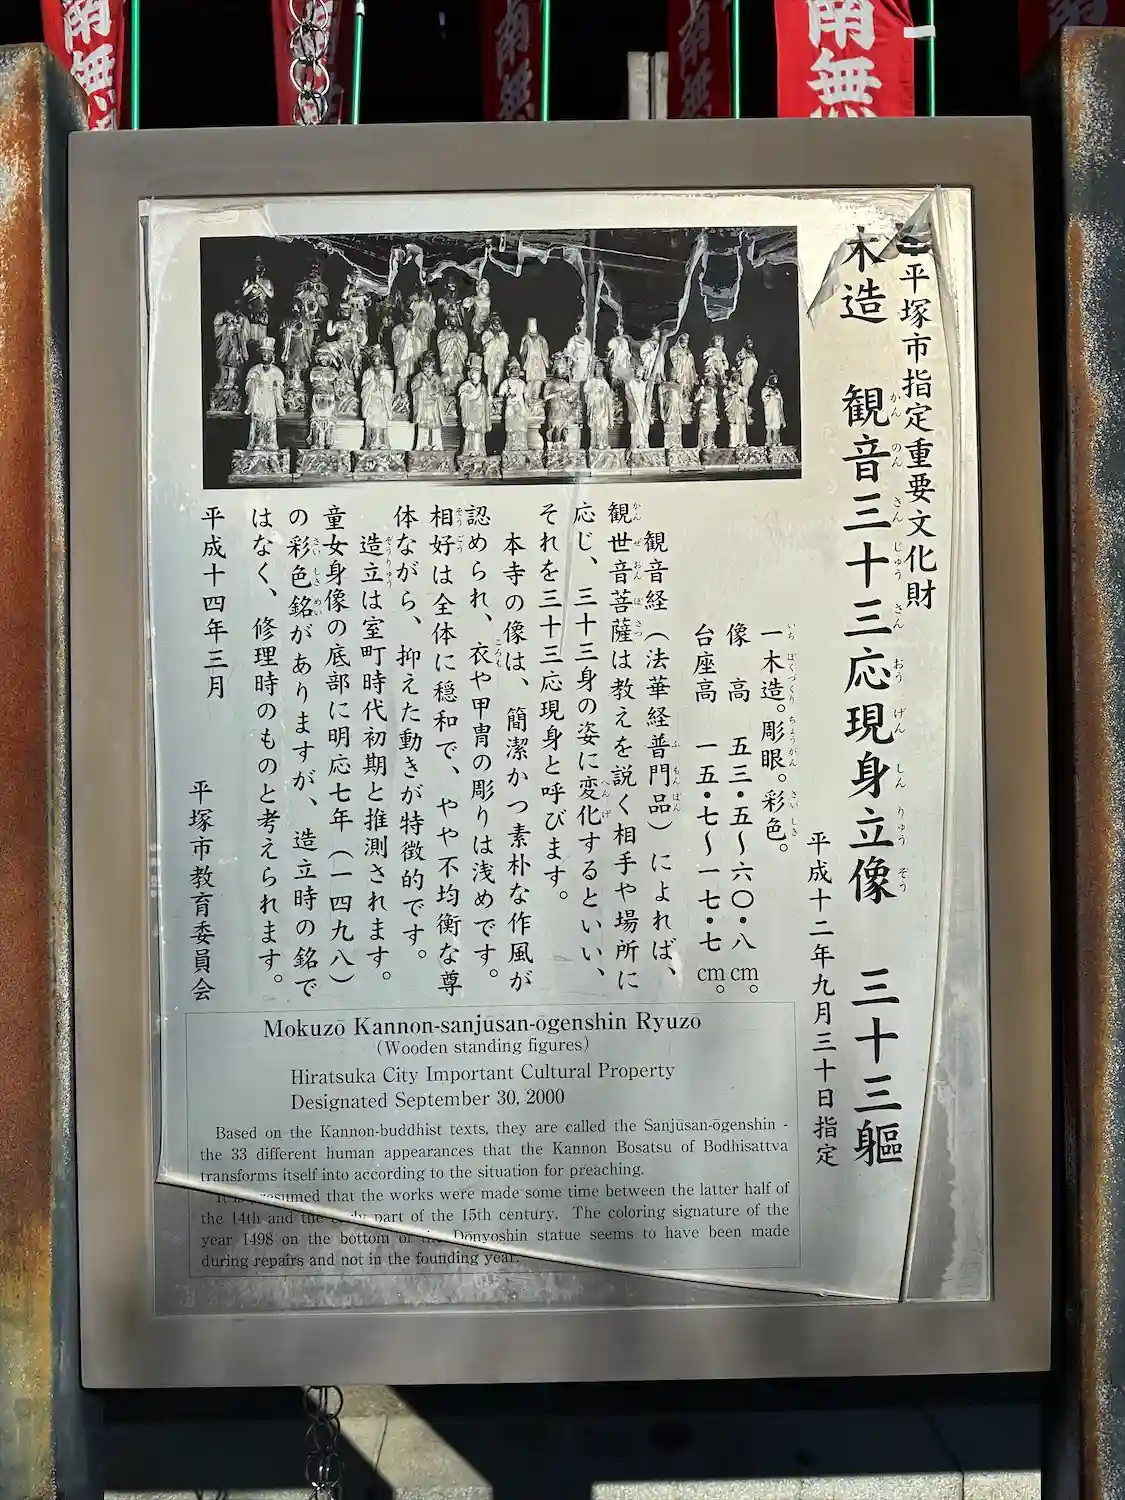 南無
南無
南無
南無
平塚市指定重要文化財
木造 観音三十三応現身立像 三十三軀
かんのんさんじゅうさんおうげんしんりゅうぞう
平成十二年九月三十日指定
一木造。彫眼。彩色。
いちぼくづくり ちょうがん さいしき
像 高 五三・五〜六〇・八 cm。
台座高 一五・七〜一七・七 cm。
観音経(法華経普門品)によれば、
ふもんぼん
観世音菩薩は教えを説く相手や場所に
かんぜおんぼさつ
応じ、三十三身の姿に変化するといい、
へんげ
それを三十三応現身と呼びます。
本寺の像は、簡潔かつ素朴な作風が
認められ、衣や甲冑の彫りは浅めです。
ころも
相好は全体に穏和で、やや不均衡な尊
そうごう
体ながら、抑えた動きが特徴的です。
造立は室町時代初期と推測されます。
ぞうりゅう
童女身像の底部に明応七年(一四九八)
の彩色銘がありますが、造立時の銘で
さいしきめい
はなく、修理時のものと考えられます。
平成十四年三月
平塚市教育委員会
Mokuzō Kannon-sanjūsan-ōgenshin Ryuzō
(Wooden standing figures)
Hiratsuka City Important Cultural Property
Designated September 30, 2000
Based on the Kannon-buddhist texts, they are called the Sanjūsan-ōgenshin -
the 33 different human appearances that the Kannon Bosatsu of Bodhisattva
transforms itself into according to the situation for preaching.
It is presumed that the works were made some time between the latter half of
the 14th and the early part of the 15th century. The coloring signature of the
year 1498 on the bottom of the Dōnyoshin statue seems to have been made
during repairs and not in the founding year.